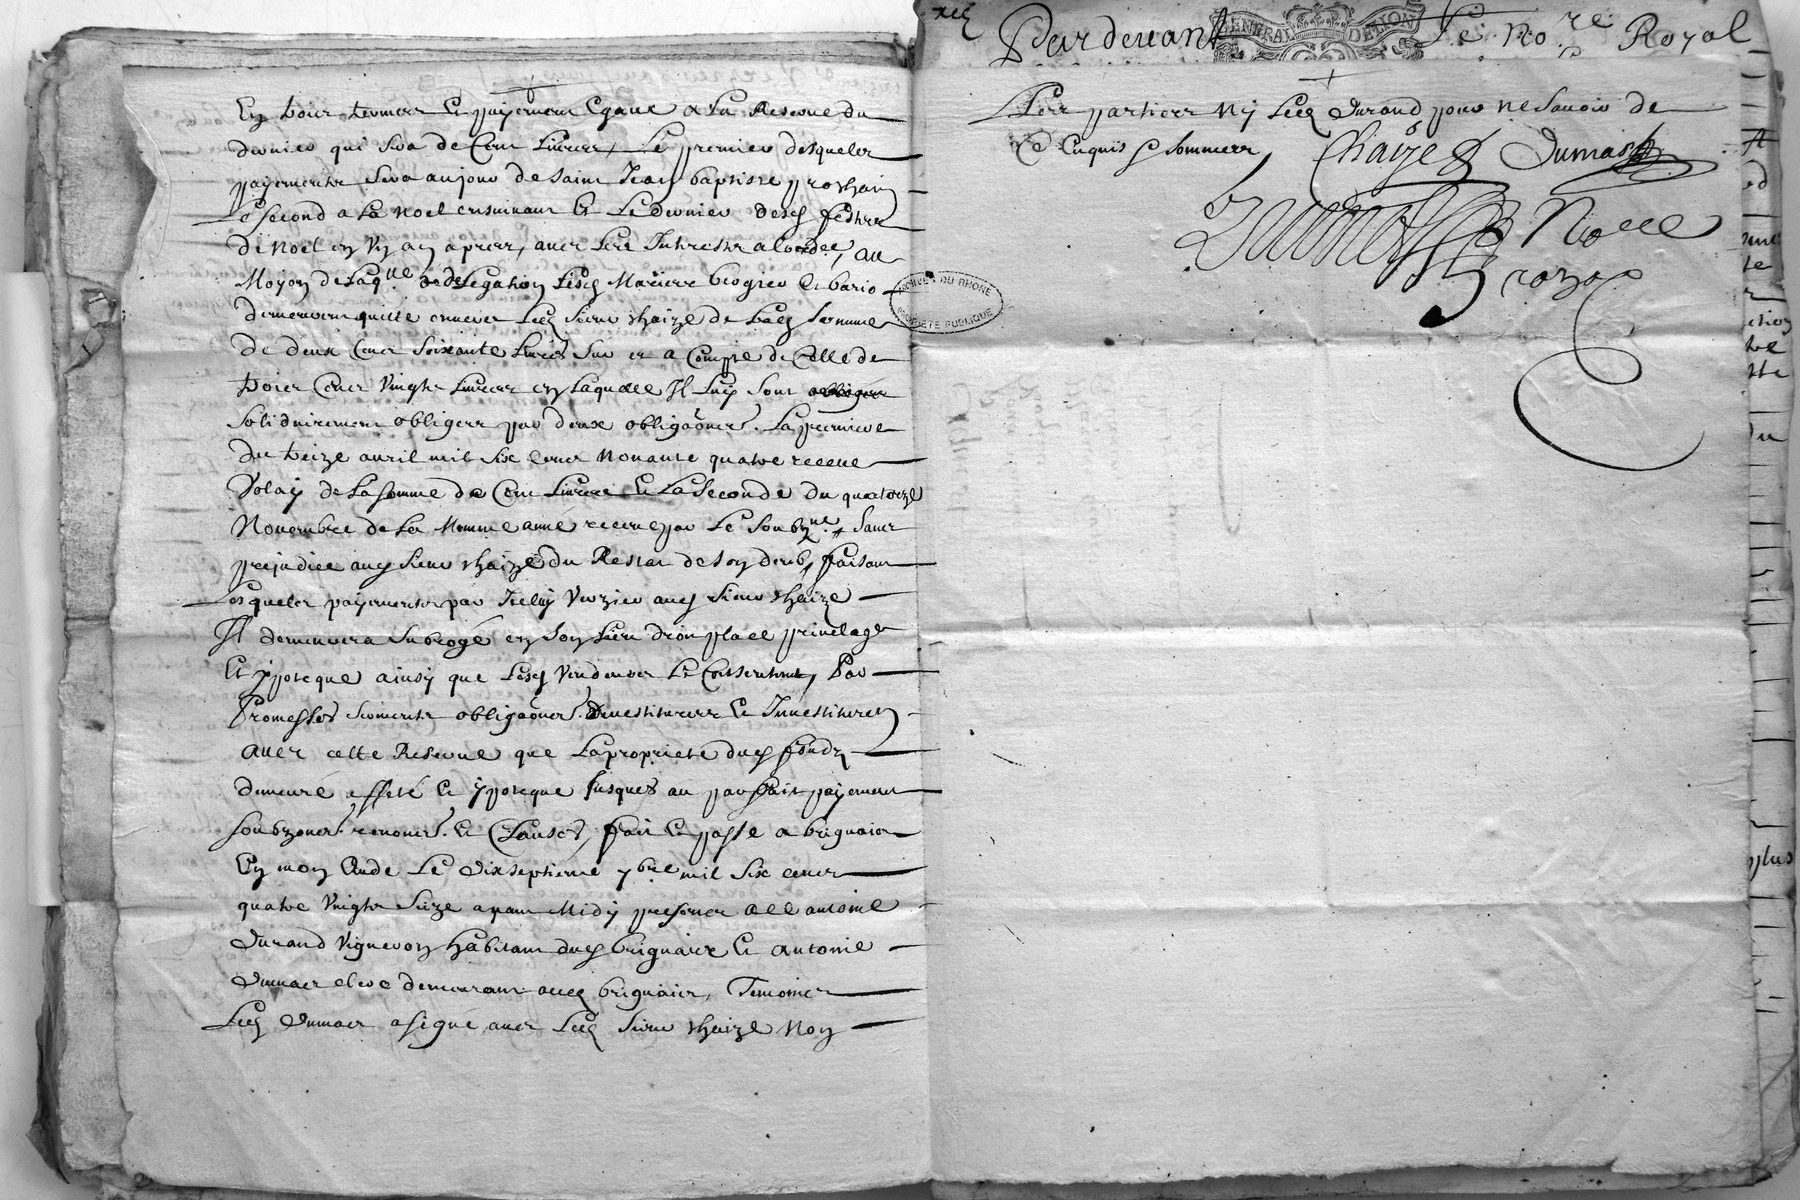 En trois termes et payement Egaux a La Reserve du
dernier qui sera de Cent Livres, Le premier desquels
payements sera au jour de saint Jean baptiste prochain
Le second a La noel ensuivant Et Le dernier desd festes
de noel en un an apres, avec Les Intherests a lordee, au
Moyen de Laq.lle delegation Lesd Mariees brogier et bario
demeurent quitte envers Led sieur chaize de lad somme
de deux Cent soixante Livres sur et a Compte de Celle de
trois Cent Vinght Livres en Laquelle Il Luy sont
solidairement obliges par deux obligaõns. La premiere
du treize avril mil six Cent Nonante quatre receue
Volay de La somme de Cent Livres Et La seconde du quatorze
Novembre de La Mesme anné receue par Le soubz.ne sans
prejudice aud sieur chaize du Restat de son deub, faisant
Lesquels payements par Icelluy Verzieu aud sieur chaize
Il demeurera subrogé en son Lieu droit place privelage
Et ypoteque ainsy que Lesd Vendeurs Le Consentent, Par
Promesses serments obligaõns. devestitures Et Investitures
avec cette Reserve que La propriete dud fondz
demeure affeté Et ypoteque Jusques au parfait payement
soubzons. renons. Et Clauses, fait Et passe a brignais
En mon Etude Le dixseptieme 7bre mil six cents
quatre Vinght seize avant Midy presents a ce antoine
Durand Vigneron habitant dud brignais Et antoine
Dumas clerc demeurant aud brignais, Temoins
Led Dumas a signé avec Led sieur chaize Non
xeg
Par devant Le No.re Royal
GENERAL DE LION
Les parties Ny Led Durand pour ne savoir de
Ce Enquis et sommes
Chaize Dumas
Noell
ARCHIVES DU RHONE
PROPRIÉTÉ PUBLIQUE
du
plus